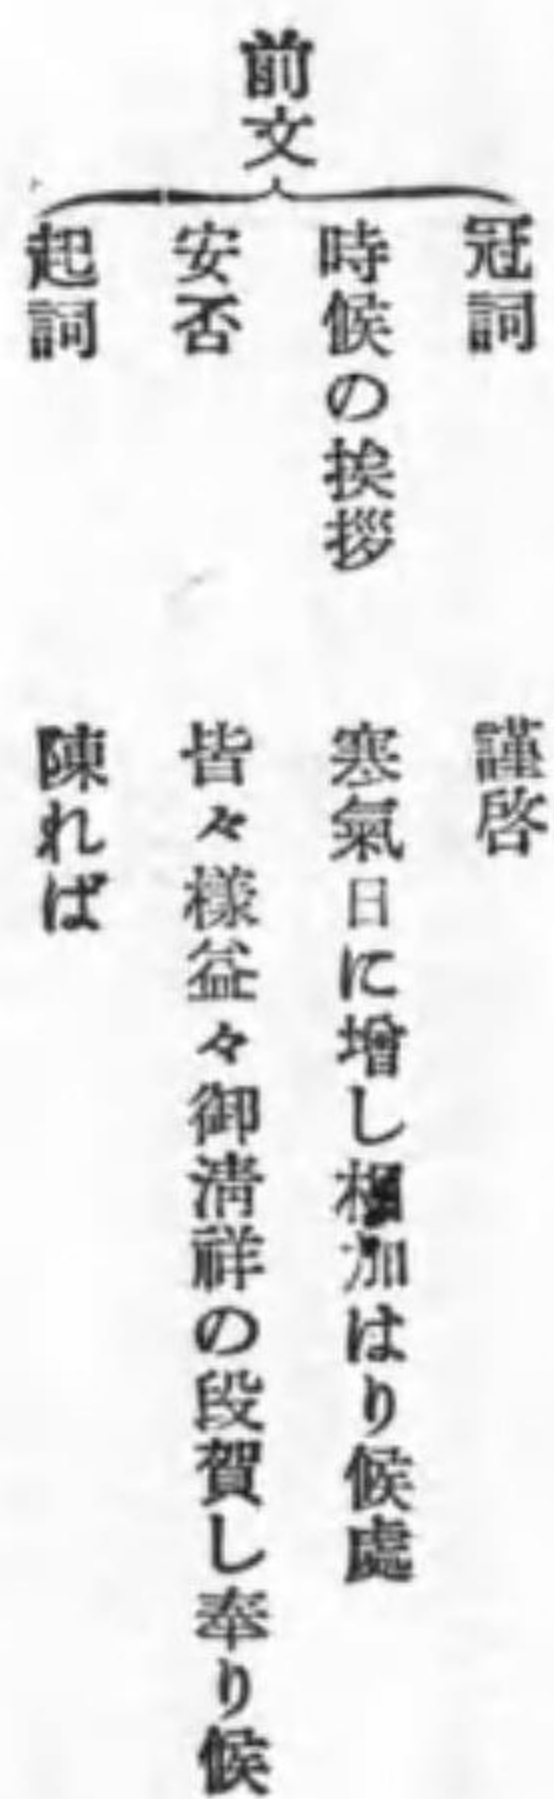 前文
冠詞　謹啓
時候の挨拶　寒氣日に增し相加はり候處
安否　皆々樣益々御淸祥の段賀し奉り候
起詞　陳れば